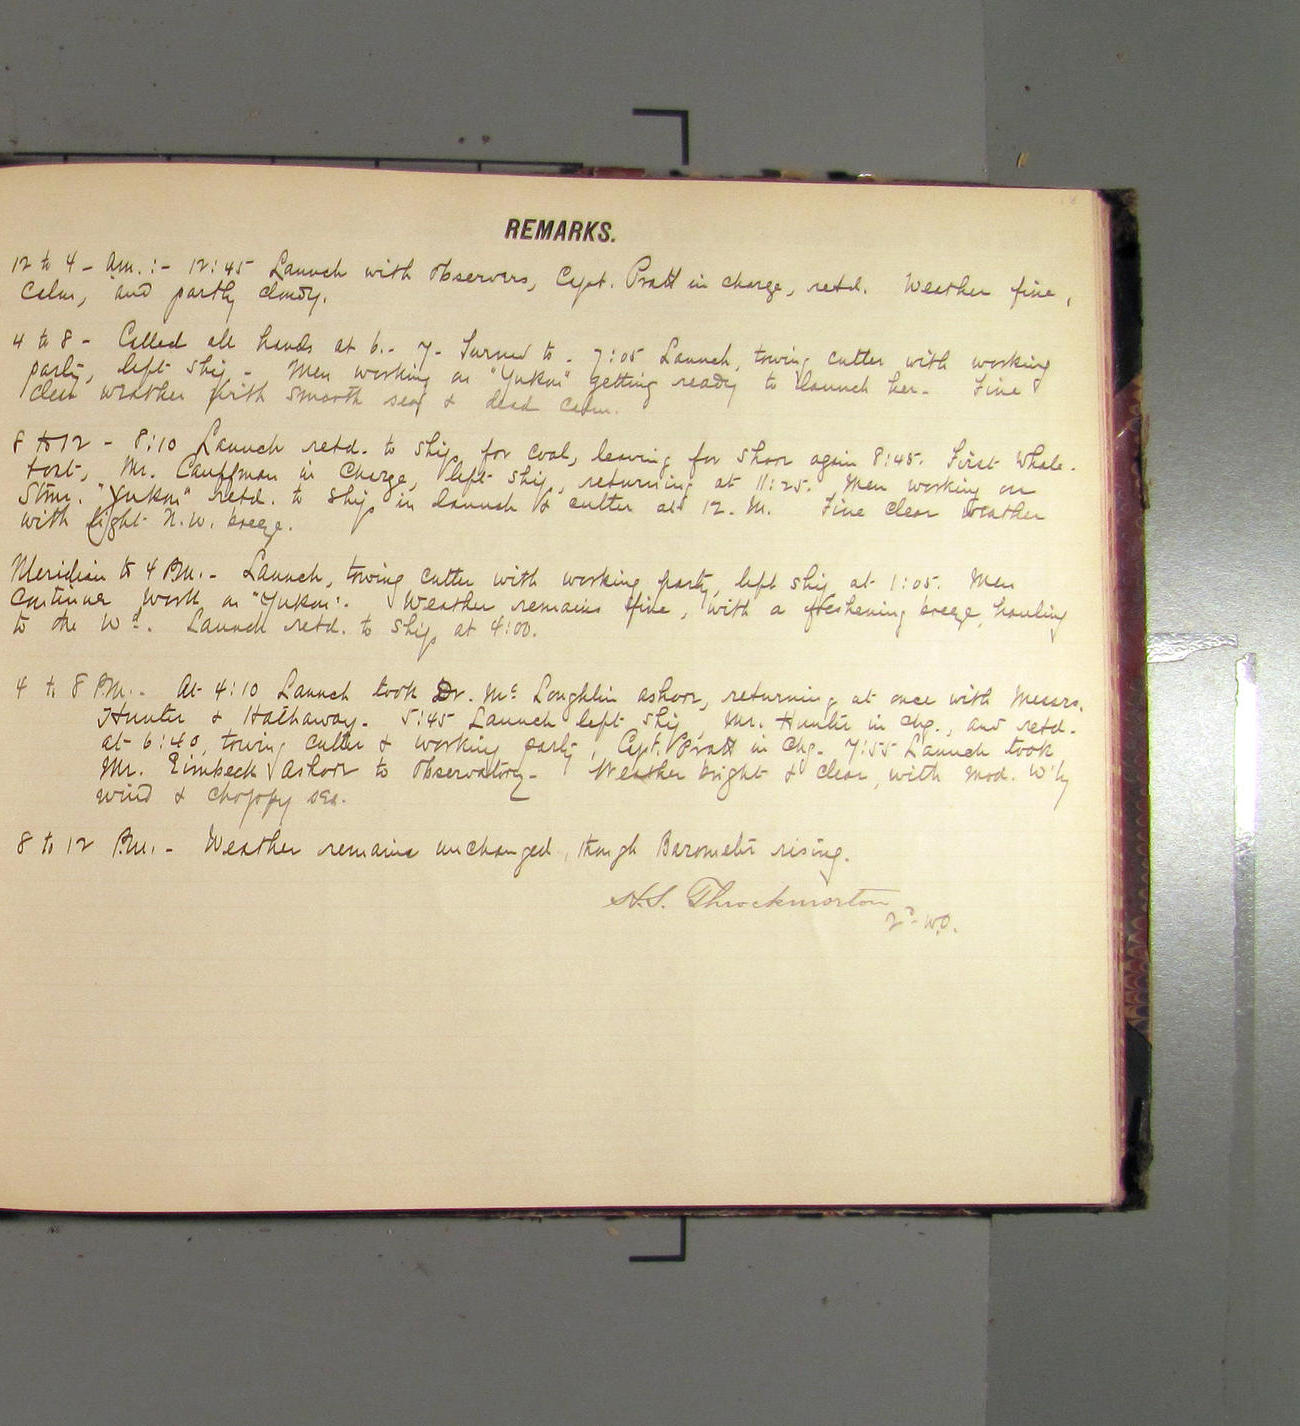 REMARKS.
12 to 4 - Am. :- 12:45 Launch with observers, Capt. Pratt in charge, retd. Weather fine,
Calm, and partly cloudy.
4 to 8 - Called all hands at 6.- 7- Turned to - 7:05 Launch, towing cutter with working
party, left ship - Men working on "Yukon" getting ready to launch her - Fine
clear weather with smooth sea & dead calm.
8 to 12 - 8:10 Launch retd. to ship for coal, leaving for shore again 8:45. First Whale-
boat, Mr. Cauffman in charge, left ship, returning at 11:25. Men working on
Stmr. "Yukon" retd. to ship in launch & cutter at 12. M. Fine clear weather
with light N.W. breeze.
Meridian to 4 P.M. - Launch, towing cutter with working party, left ship at 1:05. Men
continue work on "Yukon". Weather remains fine, with a freshening breeze, hauling
to the Wd. Launch retd. to ship at 4:00.
4 to 8 P.M. - At 4:10 Launch took Dr. Mc Loughlin ashore, returning at once with Messrs.
Hunter & Hathaway. 5:45 Launch left ship, Mr. Hunter in chg., and retd.
at 6:40, towing cutter & working party, Capt. Pratt in chg. 7:55 Launch took
Mr. Eimbeck ashore to observatory - Weather bright & clear, with mod. W'ly
wind & choppy sea.
8 to 12 P.M. - Weather remains unchanged, though Barometer rising.
H.S. Throckmorton
2d W.O.